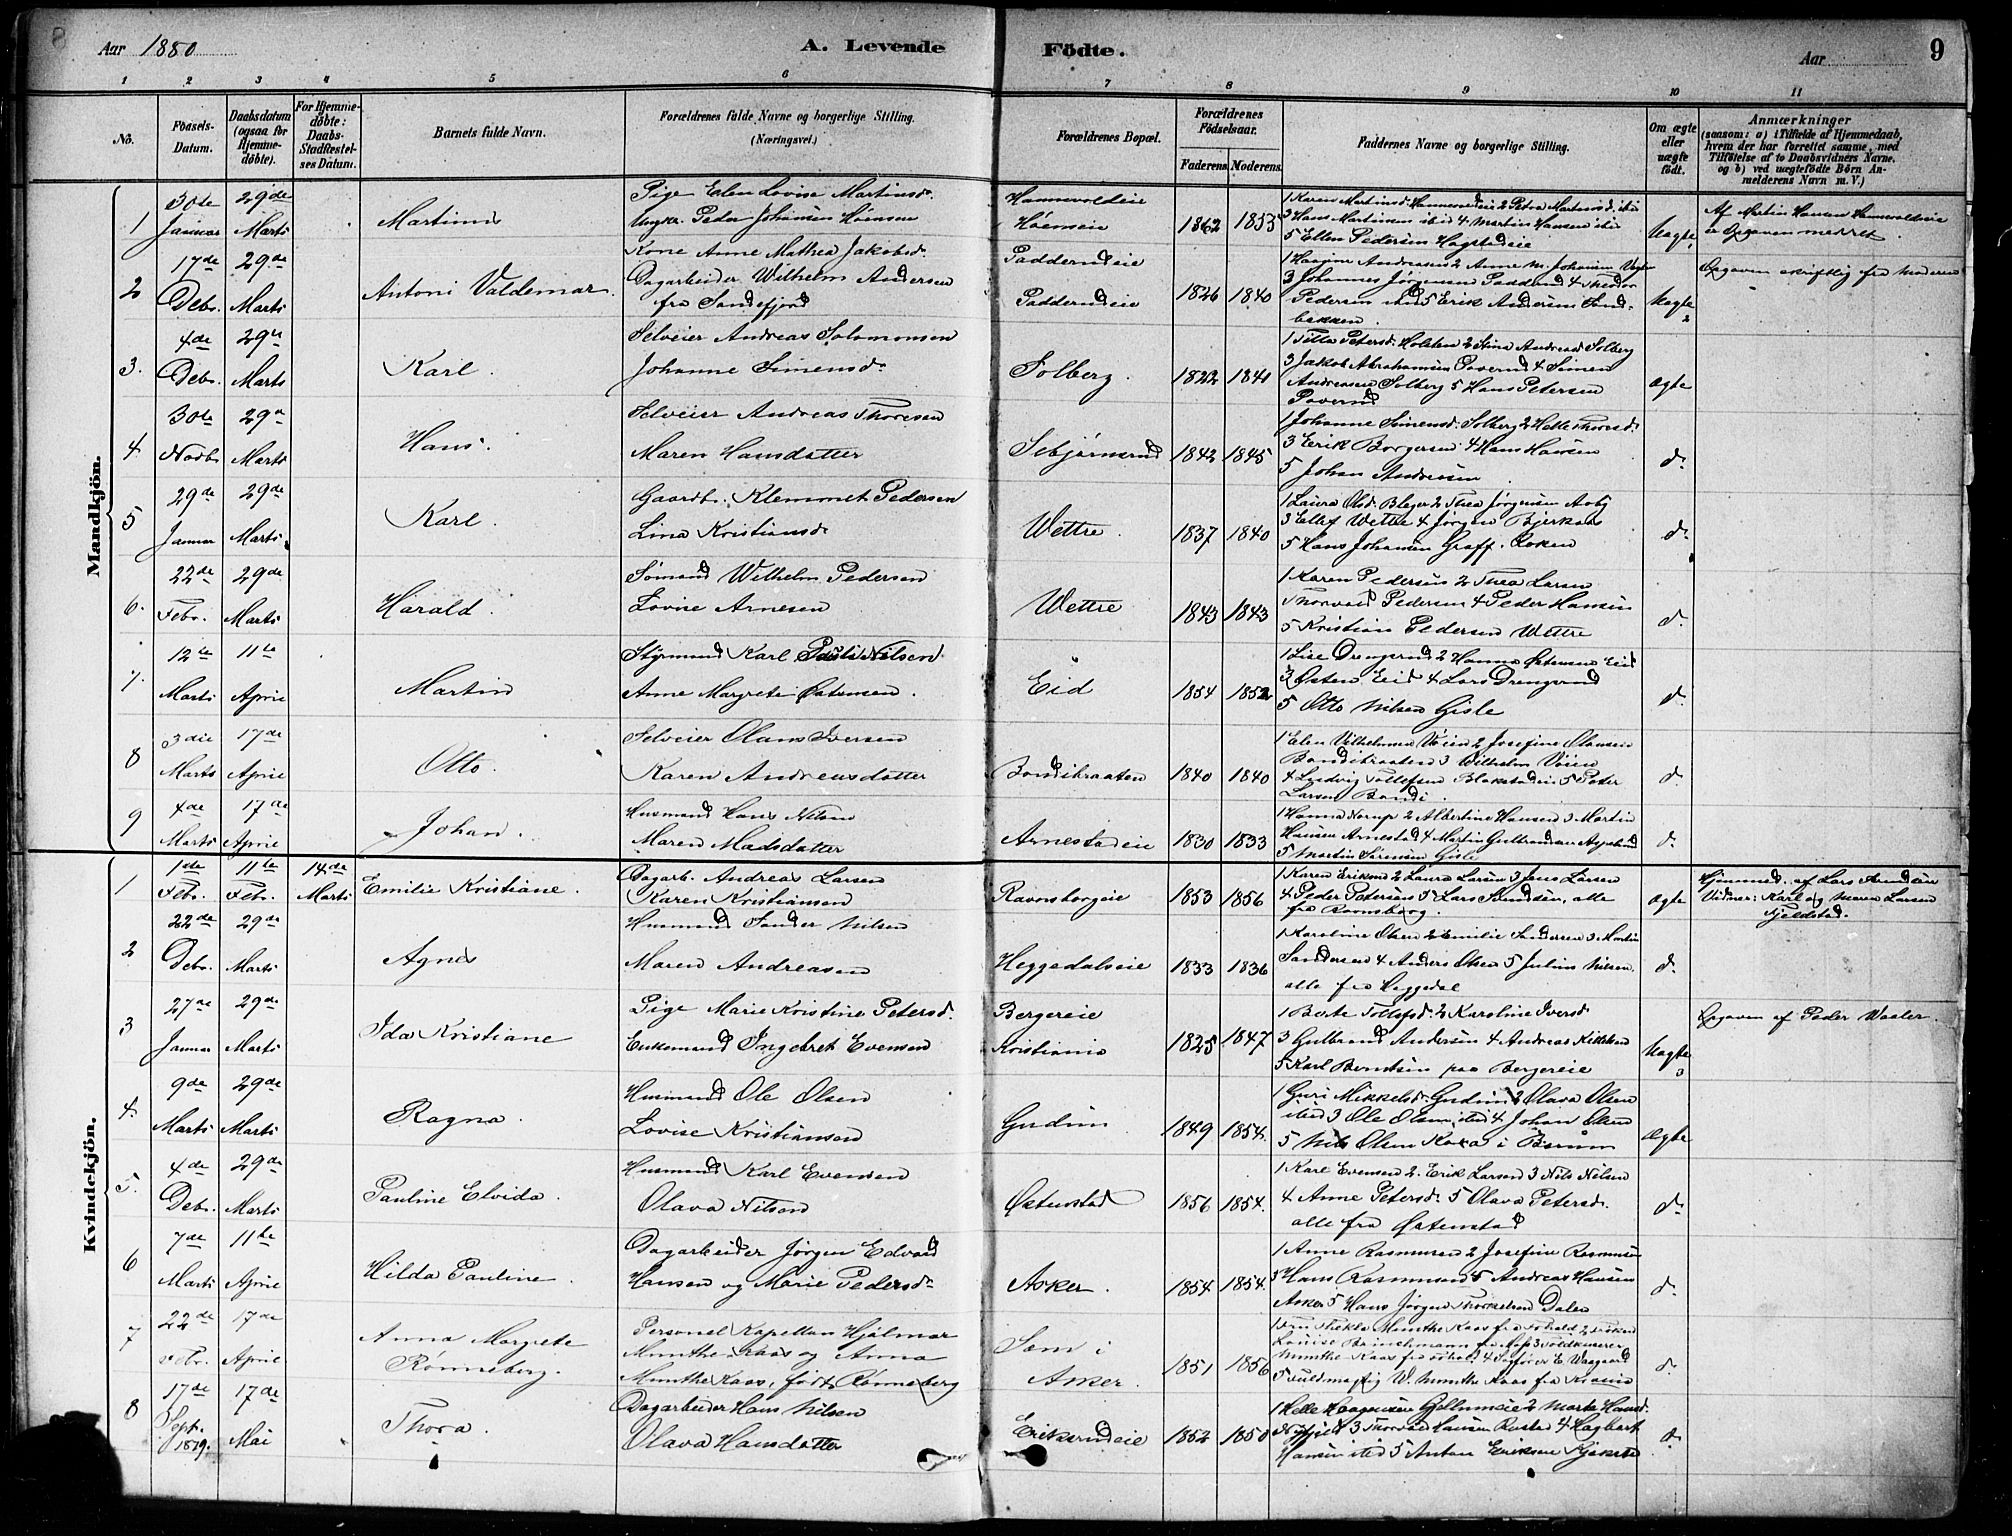 8
Aar 1880
A. Levende Födte.
Aar
9
1 2 3 4 5 6 7 8 9 10 11
No.
Födsels-Datum.
Daabsdatum (ogsaa for Hjemmedöbte).
For Hjemmedöbte: Daabs-Stadfæstelses Datum.
Barnets fulde Navn.
Forældrenes fulde Navne og borgerlige Stilling. (Næringsvei.)
Forældrenes Bopæl.
Forældrenes Födselsaar.
Faderens. Moderens.
Faddernes Navne og borgerlige Stilling.
Om ægte eller uægte födt.
Anmærkninger
(saasom: a) i Tilfælde af Hjemmedaab, hvem der har forrettet samme, med Tilföielse af to Daabsvidners Navne, og b) ved uægtefödte Börn Anmelderens Navn m. V.)
Mandkjön.
1 30te Januar 29de Marts Martinus Pige Elen Lovise Martinsd. Ungk. Peder Johansen Hönsen 1862 1853
5 Ellen Pedersen Uægte 1
2 17de Debr. 29de Marts Antoni Valdemar. Kone Anne Mathea Jakobsd. Dagarbeider Wilhelm Andersen fra Sandefjord Padderudeie Padderudeie 1826 1840
Pedersen 5 Erik Andersen Sandbakken Uægte 2
Opgaven skriftlig fra Moderen
3. 4de Debr. 29de Marts Karl. Selveier Andreas Solomonsen Johanne Simensd. Solberg. 1822 1841
3 Jakob Abrahamsen 4 Simen
Andreasen Solberg 5 Hans Petersen ægte
4. 30te Novbr. 29de Marts Hans. Selveier Andreas Thoresen Maren Hansdatter Sebjörnsrud 1842 1845
1 Johanne Simensd. Solberg 2 Helle Thoresd.
3 Eerik Borgersen 4 Hans Hansen
5 Johan Andresen d.
5 29de Januar 29de Marts Karl. Gaardb. Klemmet Pedersen Lina Kristiansd. Wettre. 1837 1840
1 Laura Olsd. Bleger 2 Thea Jørgensen Aoby
3 Ellef Wettre 4 Jørgen Bjerkaas
5 Hans Johansen Graff. Røken d.
6. 22de Febr. 29de Marts Harald. Sømand Wilhelm Pedersen Lovise Arnesen Wettre 1843 1843
1 Karen Pedersen 2 Thea Larsen
Thorvald Pedersen 4 Peder Hansen
5 Kristian Pedersen Wettre d.
7. 12te Marts 11te April Martin Styrmand Karl Nilsen Anne Margrete Østensen. Eid 1854 1852
1 Lise Drengsrud 2 Hanna Østensen Eid
3 Østen Eid 4 Lars Drengsrud
5 Otto Nilsen Gisle d.
8 3die Marts 17de April Otto. Selveier Olaus Iversen Karen Andreasdatter Bondibraaten 1840 1840
1 Elen Vilhelmsen Vøien 2 Josefine Olausen
Bondibraaten 3 Wilhelm Vøien
4 Ludvig Tollefsen Blakstadeie 5 Peter
Larsen Bondi. d.
9 4de Marts 17de April Johan. Husmand Hans Nilsen Maren Madsdatter Arnestadeie 1830 1833
1 Hanna Norup 2 Albertine Hansen 3 Martin
Hansen Arnestad 4 Martin Gulbrandsen
5 Martin Sörensen Gisle d.
Kvindekjön.
1 1ste Febr. 11te Febr. 14de Marts Emilie Kristiane. Dagarb. Andreas Larsen Karen Kristiansen Ravnsborgeie 1853 1856
1 Karen Eriksen 2 Laura Larsen 3 Jens Larsen
4 Peder Petersen 5 Lars Amundsen, alle
fra Ravnsborg. ægte
Hjemmed. af Lars Amundsen
Vidner: Karl og Maren Larsen
Fjeldstad.
2 22de Debr. 29de Marts Agnes Husmand Sander Nilsen Maren Andreasen Heggedalseie 1833 1836
1 Karoline Olsen 2 Emilie Sandersen 3 Martin
Sandersen 4 Anders Olsen 5 Julius Nilsen.
alle fra Heggedal d.
3 27de Januar 29de Marts Ida Kristiane Pige Marie Kristine Petersd. Enkemand Ingebret Evensen Bergereie Kristiania 1825 1847
1 Berte Tollefsd. 2 Karoline Iversd.
3 Gulbrand Andersen 4 Andreas Killebon
5 Karl Berntsen paa Bergereie Uægte 3
Opgaven af Peder Waaler.
4. 9de Marts 29de Marts Ragna. Husmand Ole Olsen Lovise Kristiansen Gudim 1849 1854.
1 Guri Mikkelsd. Gudim 2 Olava Olsen
isted 3 Ole Olsen isted 4 Johan Olsen
5 Nils Olsen i Bærum ægte
5. 4de Debr. 29de Marts Pauline Elvida. Husmand Karl Evensen Olava Nilsen Østenstad 1856 1854.
1 Karl Evensen 2. Erik Larsen 3 Nils Nilsen
4 Anne Petersd. 5 Olava Petersd.
alle fra Østenstad d.
6 7de Marts 11te April Hilda Pauline. Dagarbeider Jørgen Edvard Hansen og Marie Pedersd. Asker. 1854 1854.
1 Anne Rasmussen 2 Josefine Rasmussen
3 Hans Rasmussen 4 Andreas Hansen
Asker 5 Hans Jørgen Thorkelsen Dalen d.
7 22de Febr. 17de April Anna Margrete Rönneberg. Personel Kapellan Hjalmar Munthe-Kaas og Anna Munthe Kaas, født Rönneberg Sem i Asker. 1851 1856
1 Fru Thekla Munthe Kaas fra 2 Frøken
Louise Brinchmann fra Moss 3 Toldkasserer
Munthe Kaas fra 4 E. Waagaard
5 Fuldmægtig W. Munthe Kaas fra Krania d.
8 17de Septr. 1879. 17de Mai Thora. Dagarbeider Hans Nilsen Olava Hansdatter Eriksrudeie 1852 1850
1 Helle Haagensen Gellumeie 2 Marte Hansd.
3 Thorvald Hansen Rustad 4 Hagbart
Hansen isted 5 Anton Eriksen d.